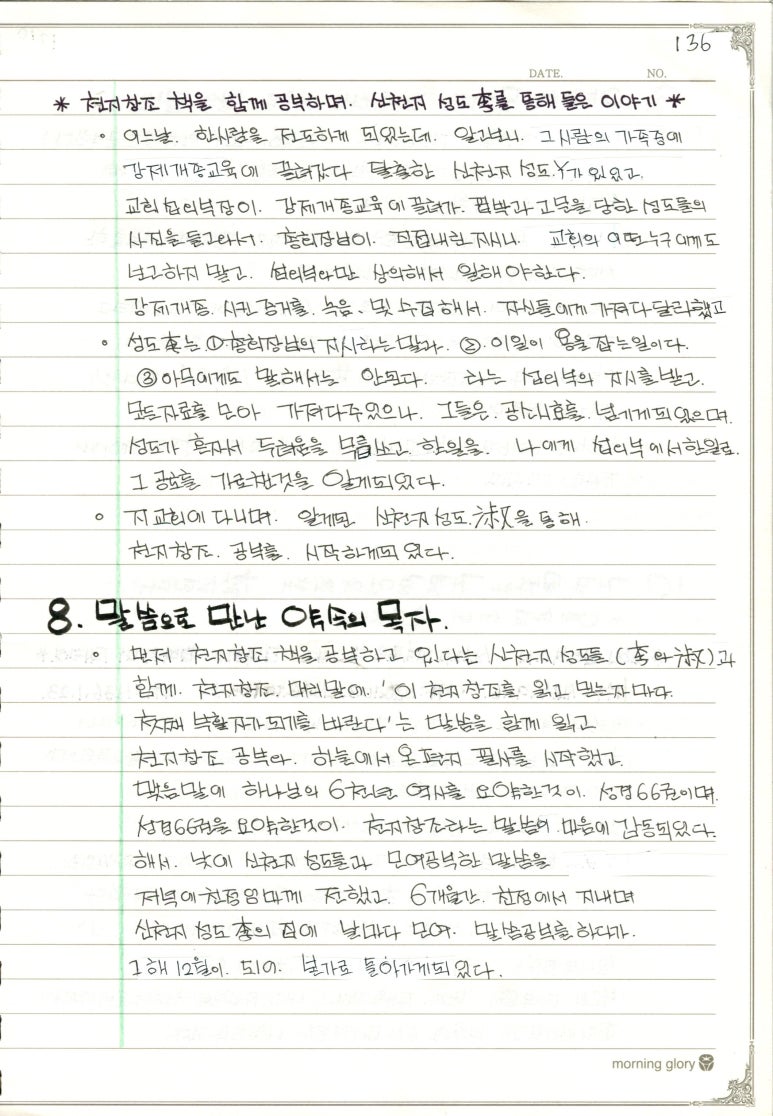 136
DATE. NO.
* 천지창조 책을 함께 공부하며. 신천지 성도 李를 통해 들은 이야기 *
○ 어느날. 한사람을 전도하게 되었는데. 알고보니. 그사람의 가족중에
강제개종교육에 끌려갔다 탈출한 신천지 성도.Y가 있었고.
교회 섭외부장이. 강제개종교육에 끌려가. 핍박과 고문을 당한 성도들의
사진을 들고와서. 총회장님이. 직접내린지시니. 교회의 어떤누구에게도
보고하지 말고. 섭외부와만 상의해서 일해야한다.
강제개종. 시킨증거를. 녹음. 및 수집해서. 자신들에게 가져다달라했고
○ 성도 李는. ①총회장님의 지시라는말과. ②. 이일이 용을 잡는일이다.
③아무에게도 말해서는 안된다. 라는 섭외부의 지시를받고.
모든자료를 모아 가져다주었으나. 그들은. 공소시효를. 넘기게되었으며.
성도가 혼자서 두려움을 무릅쓰고. 한일을. 나에게 섭외부에서한일로.
그 공로를 가로챈것을 알게되었다.
○ 지교회에 다니며. 알게된 신천지 성도.淑을 통해.
천지창조. 공부를. 시작하게되었다.
8. 말씀으로 만난 약속의 목자.
○ 먼저 천지창조 책을공부하고 있다는 신천지 성도들 (李와 淑)과
함께. 천지창조. 머리말에. '이 천지창조를 읽고 믿는자마다.
첫째 부활자가되기를 바란다'는 말씀을 함께 읽고
천지창조 공부와. 하늘에서 온 편지 필사를 시작했고.
맺음말에 하나님의 6천년 역사를 요약한것이. 성경66권이며.
성경66권을 요약한것이. 천지창조라는 말씀에 마음에 감동되었다.
해서. 낮에 신천지 성도들과 모여공부한 말씀을
저녁에친정엄마께 전했고. 6개월간. 친정에서 지내며
신천지 성도 李의 집에 날마다 모여. 말씀공부를하다가.
그해 12월이. 되어. 본가로 돌아가게되었다.
morning glory